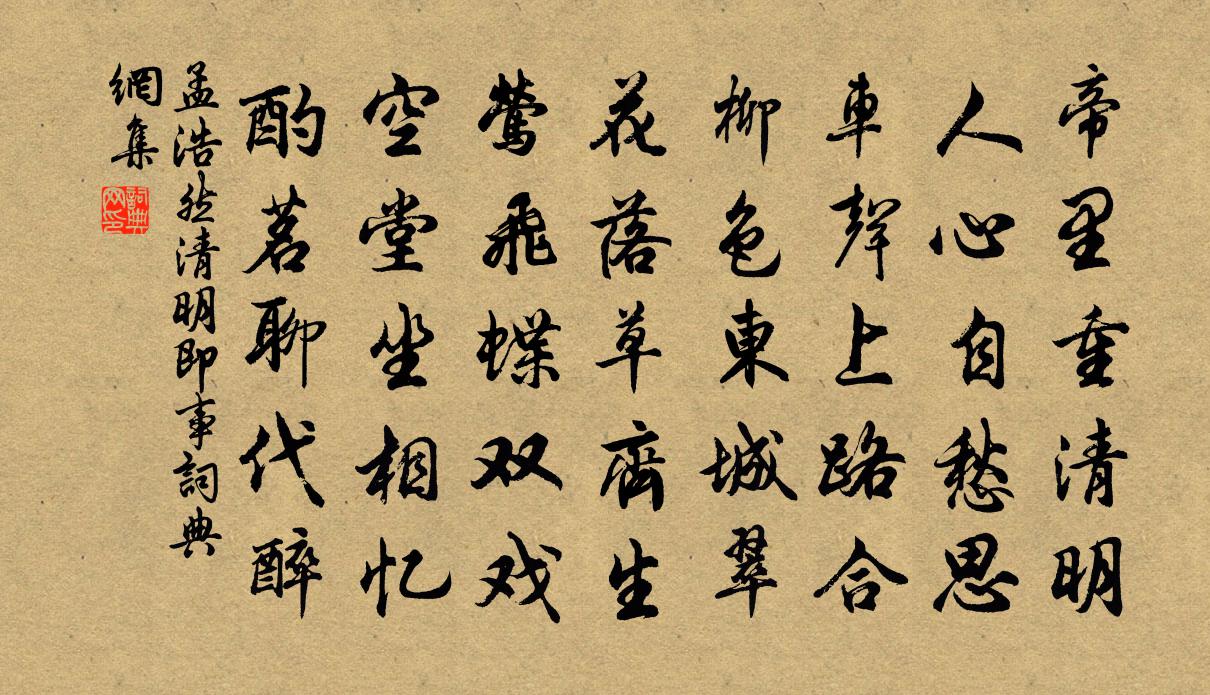 帝里重清明
人心自愁思
車聲上路合
柳色東城翠
花落草齊生
鶯飛蝶双戏
空堂坐相忆
酌茗聊代醉
孟浩然清明即事詞典
網集
詞典
网印